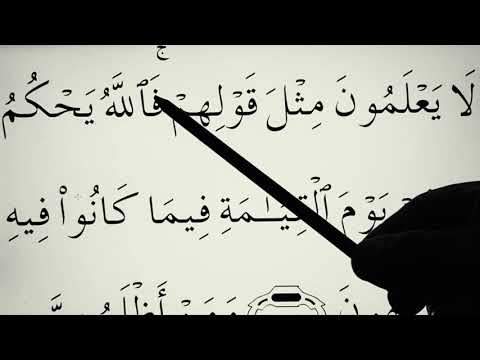 لَا يَعْلَمُونَ مِثْلَ قَوْلِهِمْ ۚ فَٱللَّهُ يَحْكُمُ
يَوْمَ ٱلْقِيَـٰمَةِ فِيمَا كَانُوا۟ فِيهِ
وَمَنْ أَظْلَمُ